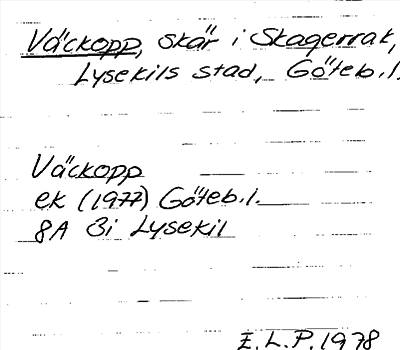 Väckopp, skär i Skagerrak,
Lysekils stad, Göteb.l.
Väckopp
ek (1977) Göteb.l.
8A 3i Lysekil
E.L.P. 1978